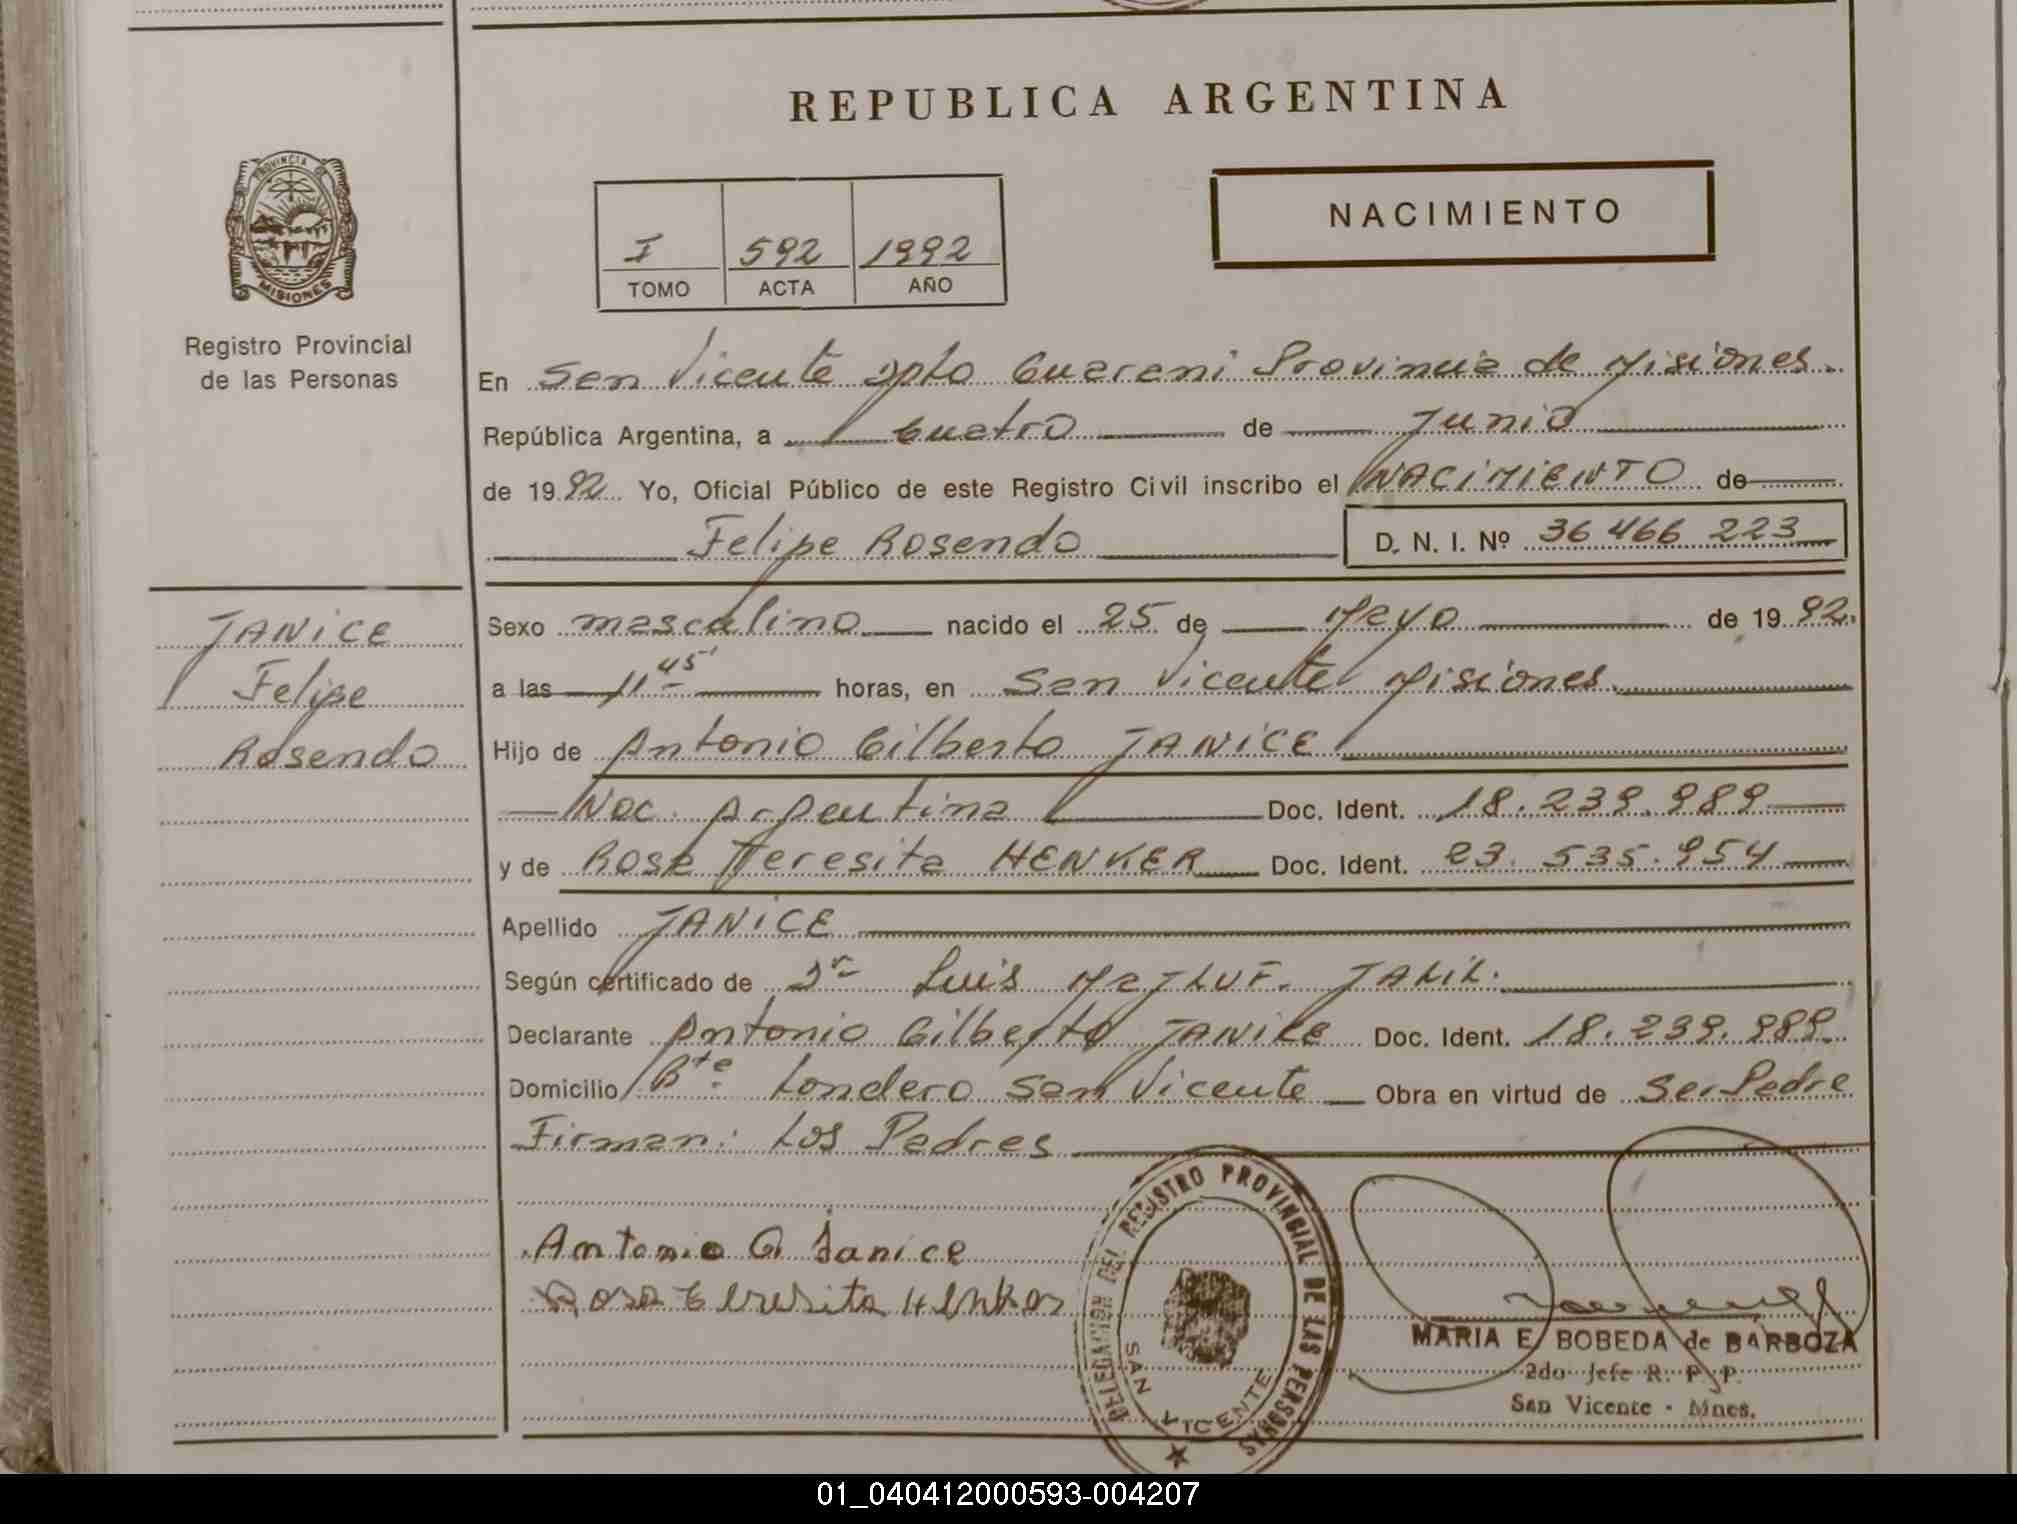 REPUBLICA ARGENTINA
PROVINCIA DE
MISIONES
Registro Provincial
de las Personas
NACIMIENTO
I 592 1992
TOMO ACTA AÑO
En San Vicente Dpto Guarani Provincia de Misiones.
República Argentina, a Cuatro de Junio
de 1992 Yo, Oficial Público de este Registro Civil inscribo el NACIMIENTO de
Felipe Rosendo D. N. I. Nº 36 466 223
JANICE
Felipe
Rosendo
Sexo masculino nacido el 25 de Mayo de 1992.
a las 11 45' horas, en San Vicente Misiones.
Hijo de Antonio Gilberto JANICE
Nac. Argentina Doc. Ident. 18.239.989
y de Rosa Teresita HENKER Doc. Ident. 23.535.954
Apellido JANICE
Según certificado de Dr Luis MAJLUF. JALIL.
Declarante Antonio Gilberto JANICE Doc. Ident. 18.239.989.
Domicilio Bº Londero San Vicente Obra en virtud de Ser Padre
Firman: Los Padres
Antonio G Janice
Rosa Teresita Henker
DELEGACION DEL REGISTRO PROVINCIAL DE LAS PERSONAS
SAN VICENTE
MARIA E. BOBEDA de BARBOZA
2do Jefe R. P. P.
San Vicente - Mnes.
01_040412000593-004207